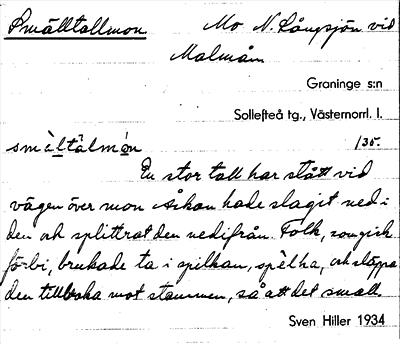 Smälltallmon Mo N. Långsjön vid
Malmån
Graninge s:n
Sollefteå tg., Västernorrl. l.
smäl̲tàlmo̲n 135.
En stor tall har stått vid
vägen över mon Åskan hade slagit ned i
den och splittrat den nedifrån. Folk, som gick
förbi, brukade ta i spilkan, spèlha, och släppa
den tillbaka mot stammen, så att det small.
Sven Hiller 1934